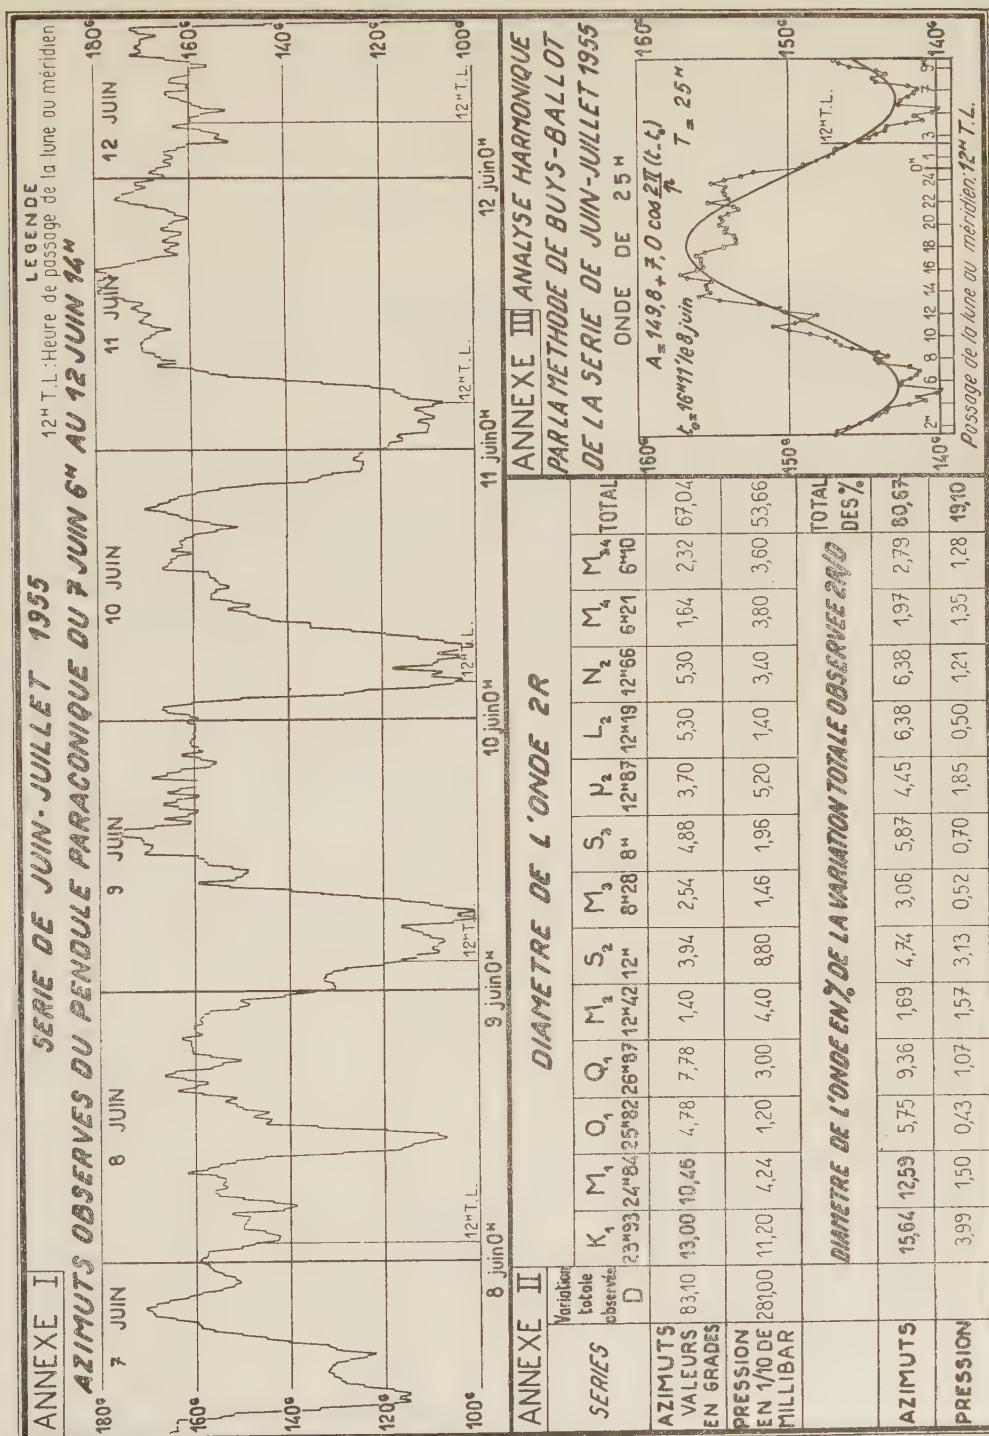 ANNEXE I
SERIE DE JUIN-JUILLET 1955
LEGENDE
12ᴴ T.L.: Heure de passage de la lune au méridien
AZIMUTS OBSERVES DU PENDULE PARACONIQUE DU 7 JUIN 6ᴴ AU 12 JUIN 14ᴴ
180ᴳ 7 JUIN 8 JUIN 9 JUIN 10 JUIN 11 JUIN 12 JUIN 180ᴳ
160ᴳ 160ᴳ
140ᴳ 140ᴳ
120ᴳ 120ᴳ
100ᴳ 12ᴴ T.L. 12ᴴ T.L. 12ᴴ T.L. 12ᴴ T.L. 100ᴳ
8 juin 0ᴴ 9 juin 0ᴴ 10 juin 0ᴴ 11 juin 0ᴴ 12 juin 0ᴴ
ANNEXE II DIAMETRE DE L'ONDE 2R
SERIES Variation totale observée D K₁ M₁ O₁ Q₁ M₂ S₂ M₃ S₃ μ₂ L₂ N₂ M₄ TOTAL
23ᴴ93 24ᴴ84 25ᴴ82 26ᴴ87 12ᴴ42 12ᴴ 8ᴴ28 8ᴴ 12ᴴ87 12ᴴ19 12ᴴ66 6ᴴ21 6ᴴ10
AZIMUTS VALEURS EN GRADES 83,10 13,00 10,46 4,78 7,78 1,40 3,94 2,54 4,88 3,70 5,30 5,30 1,64 2,32 67,04
PRESSION EN 1/10 DE MILLIBAR 281,00 11,20 4,24 1,20 3,00 4,40 8,80 1,46 1,96 5,20 1,40 3,40 3,80 3,60 53,66
DIAMETRE DE L'ONDE EN % DE LA VARIATION TOTALE OBSERVEE 2R/D TOTAL DES %
AZIMUTS 15,64 12,59 5,75 9,36 1,69 4,74 3,06 5,87 4,45 6,38 6,38 1,97 2,79 80,67
PRESSION 3,99 1,50 0,43 1,07 1,57 3,13 0,52 0,70 1,85 0,50 1,21 1,35 1,28 19,10
ANNEXE III ANALYSE HARMONIQUE
PAR LA METHODE DE BUYS-BALLOT
DE LA SERIE DE JUIN-JUILLET 1955
ONDE DE 25ᴴ
160ᴳ 160ᴳ
A = 149,8 + 7,0 cos 2π/n (t-t₀)
t₀ = 16ᴴ11' le 8 juin T = 25ᴴ
150ᴳ 150ᴳ
12ᴴ T.L.
140ᴳ 2ᴴ 4 6 8 10 12 14 16 18 20 22 24 0ᴴ 1 3 7 9ᴴ 140ᴳ
Passage de la lune au méridien: 12ᴴ T.L.